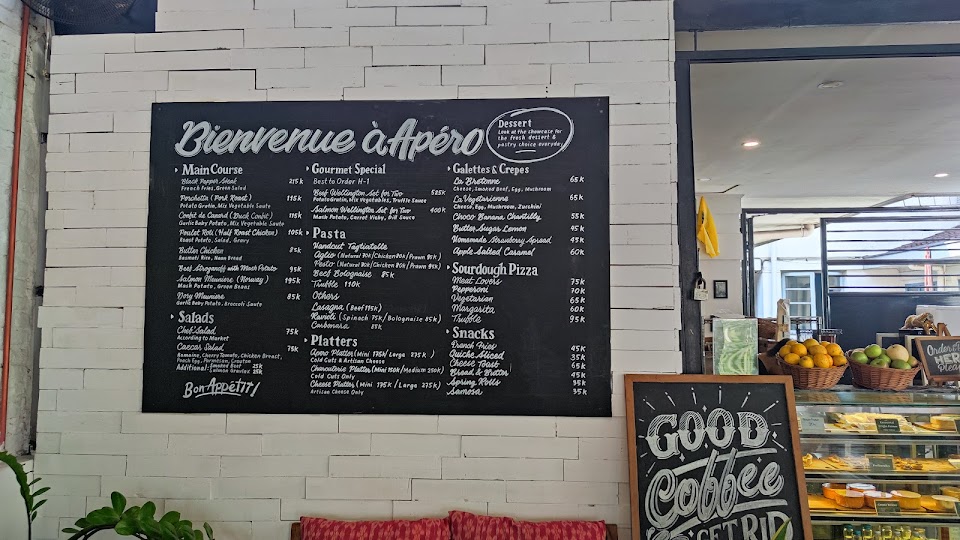 Bienvenue à Apéro
Dessert
Look at the showcase for
the fresh dessert &
pastry choice everyday
Main Course
Black Pepper Steak 215K
French Fries, Green Salad
Porchetta (Pork Roast) 115K
Potato Gratin, Mix Vegetable Saute
Confit de Canard (Duck Confit) 115K
Garlic Baby Potato, Mix Vegetable Saute
Poulet Roti (Half Roast Chicken) 105K
Roast Potato, Salad, Gravy
Butter Chicken 85K
Basmati Rice, Naan Bread
Beef Stroganoff with Mash Potato 95K
Salmon Meuniere (Norway) 195K
Mash Potato, Green Beans
Dory Meuniere 85K
Garlic Baby Potato, Broccoli Saute
Salads
Chef Salad 75K
According to Market
Caesar Salad 75K
Romaine, Cherry Tomato, Chicken Breast,
Poach Egg, Parmesan, Crouton
Additional: Smoked Beef 25K
Salmon Gravlax 25K
Bon Appétit!
Gourmet Special
Best to Order H-1
Beef Wellington Set for Two 525K
Potato Gratin, Mix Vegetables, Truffle Sauce
Salmon Wellington Set for Two 400K
Mash Potato, Carrot Vichy, Dill Sauce
Pasta
Handcut Tagliatelle
Aglio (Natural 70K/Chicken 80K/Prawn 85K)
Pesto (Natural 70K/Chicken 80K/Prawn 85K)
Beef Bolognaise 85K
Truffle 110K
Others
Lasagna (Beef 115K)
Ravioli (Spinach 75K/Bolognaise 85K)
Carbonara 85K
Platters
Apero Platter (Mini 175K/Large 275K)
Cold Cuts & Artisan Cheese
Charcuterie Platter (Mini 150K/Medium 250K)
Cold Cuts Only
Cheese Platter (Mini 175K/Large 275K)
Artisan Cheese Only
Galettes & Crepes
La Bretonne 65K
Cheese, Smoked Beef, Egg, Mushroom
La Vegetarienne 65K
Cheese, Egg, Mushroom, Zucchini
Choco Banana Chantilly 55K
Butter Sugar Lemon 45K
Homemade Strawberry Spread 45K
Apple Salted Caramel 60K
Sourdough Pizza
Meat Lovers 75K
Pepperoni 70K
Vegetarian 65K
Margarita 60K
Truffle 95K
Snacks
French Fries 45K
Quiche Sliced 35K
Cheese Toast 65K
Bread & Butter 45K
Spring Rolls 35K
Samosa 35K
GOOD
Coffee
GET RID
Order
HERE
Please